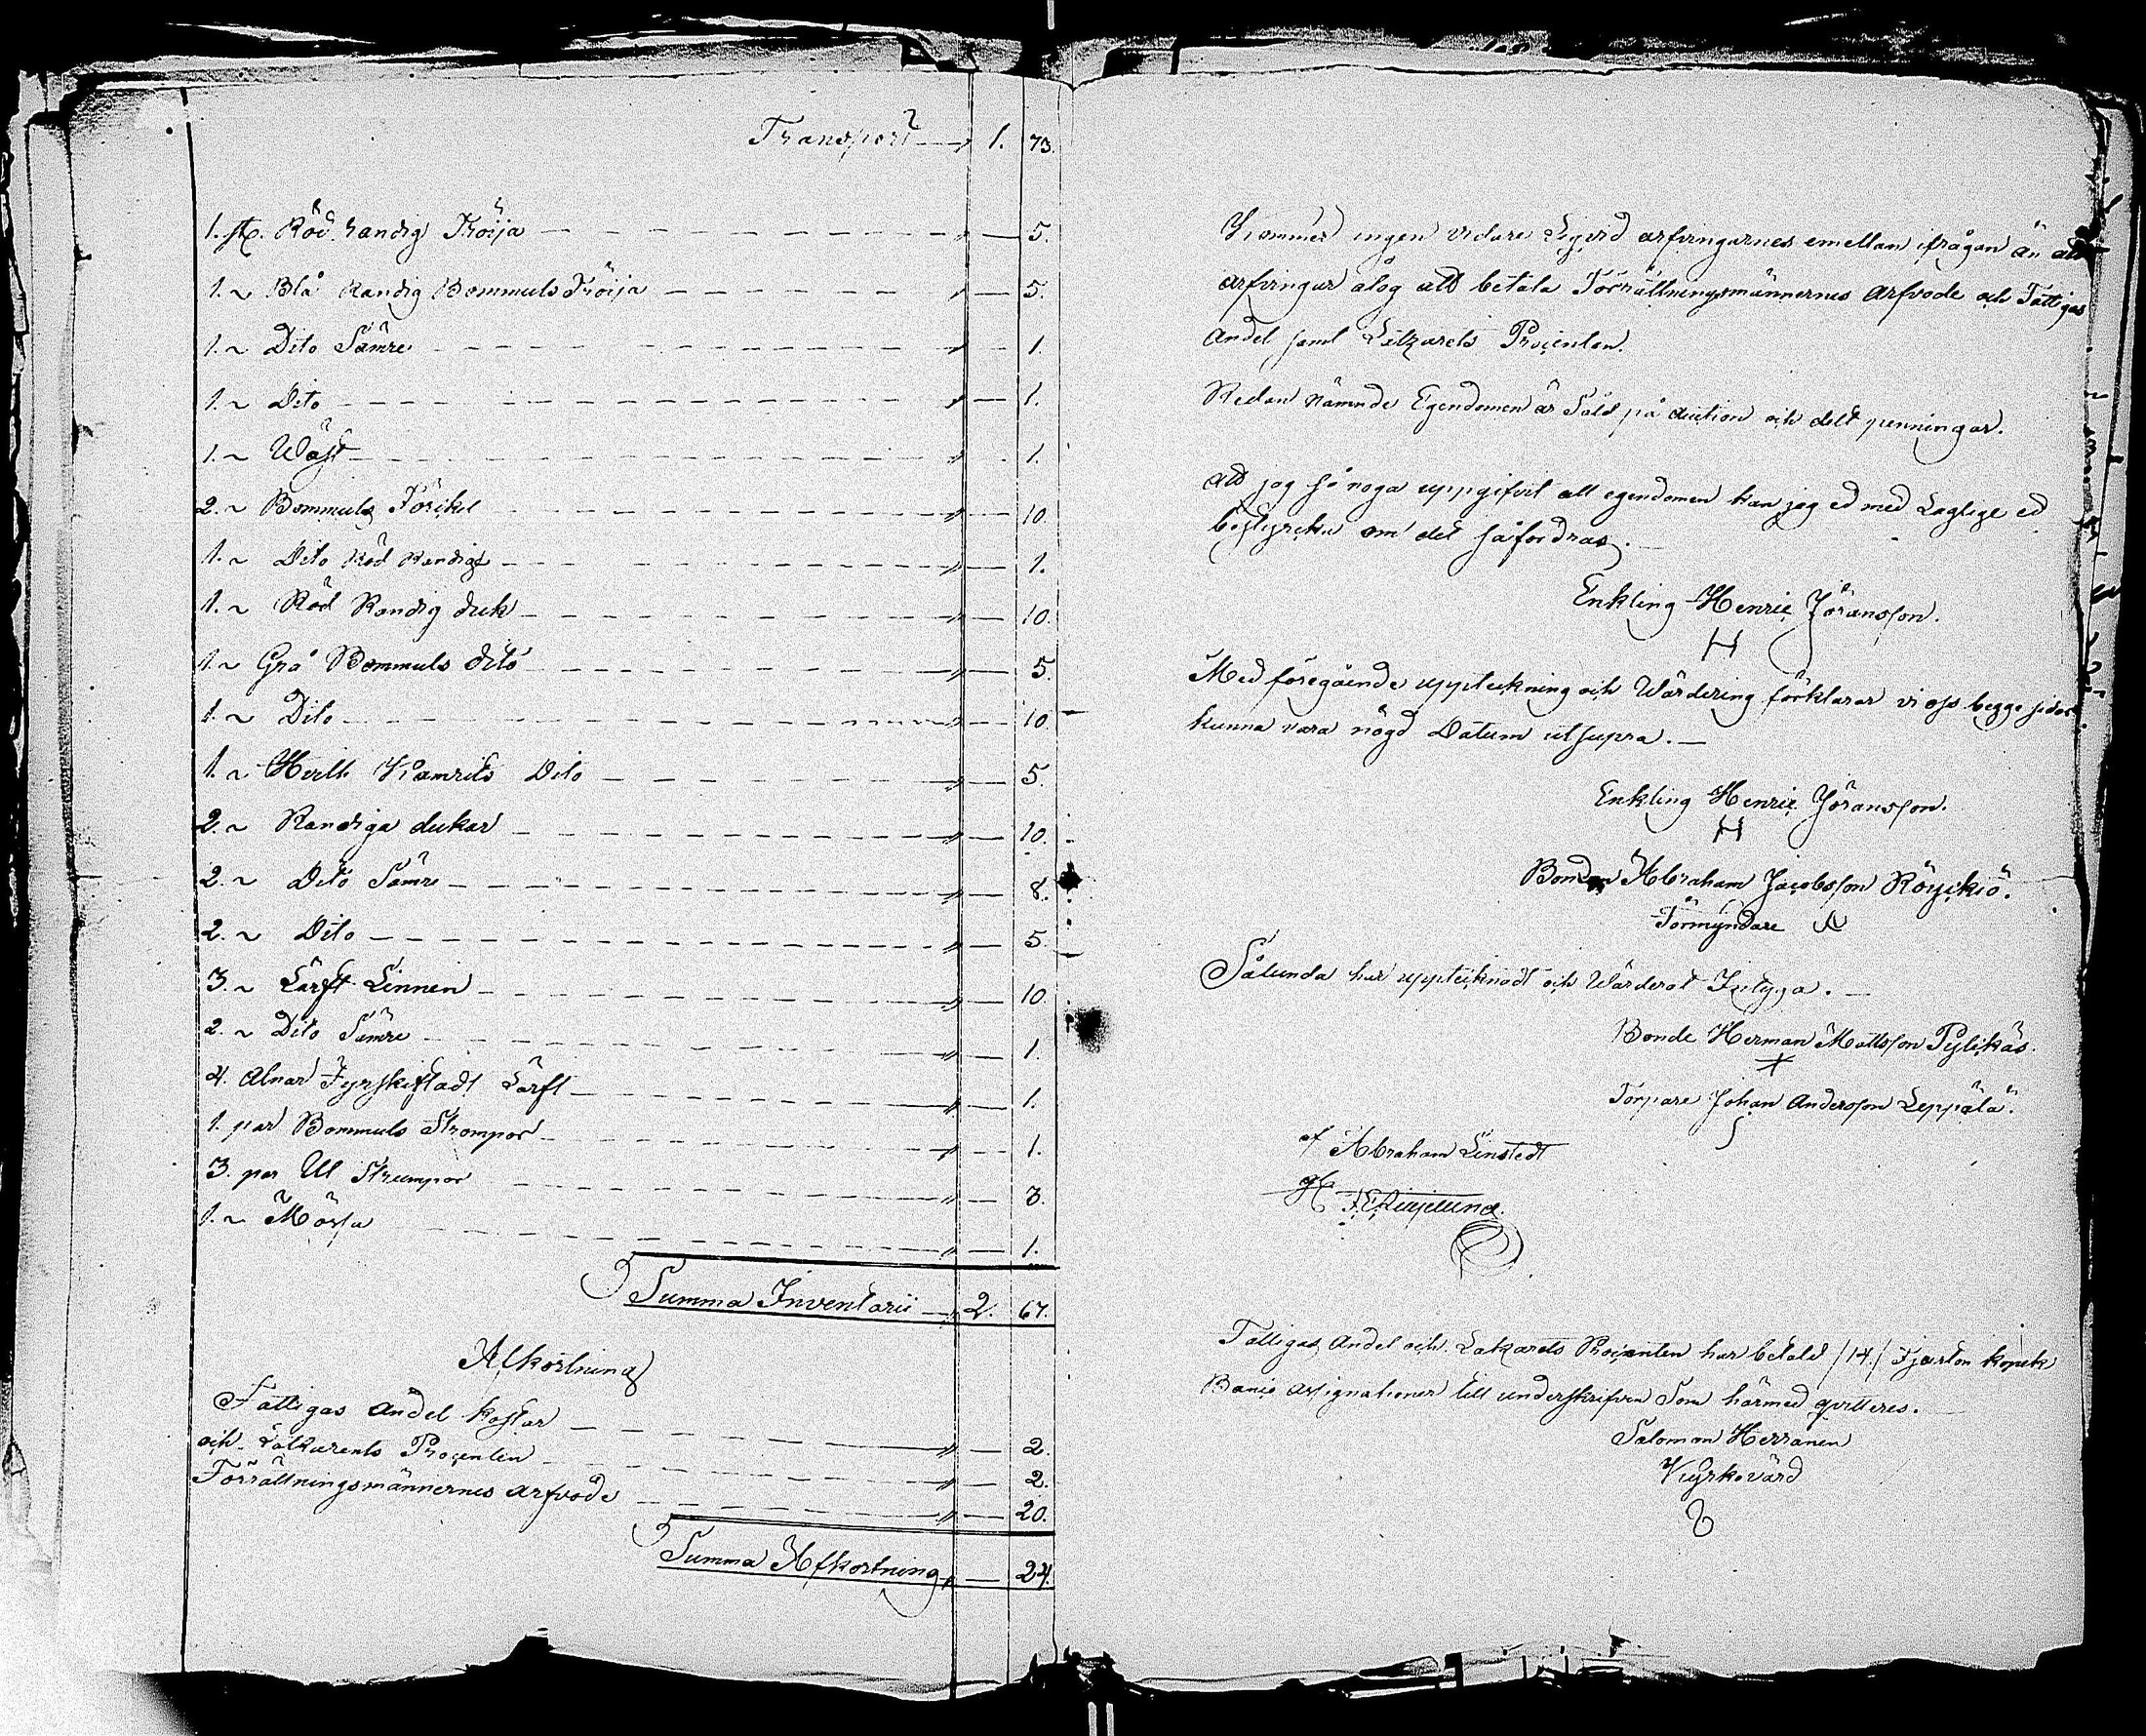 Transport — " 1. 73.
1. st. Röd randig Tröija — " — 5.
1. ~ Blå Randig Bommuls Tröija — " — 5.
1. ~ Dito Sämre — " — 1.
1. ~ Dito — " — 1.
1. ~ Wäst — " — 1.
2. ~ Bommuls Förikel — " — 10.
1. ~ Dito Röd Randigt — " — 1.
1. ~ Röd Randig duk — " — 10.
1. ~ Grå Bommuls dito — " — 5.
1. ~ Dito — " — 10.
1. ~ Kamriks Dito — " — 5.
2. ~ Randiga dukar — " — 10.
2. ~ Dito Sämre — " — 8.
2. ~ Dito — " — 5.
3. ~ Lärft Linnen — " — 10.
2. ~ Dito Sämre — " — 1.
4. Alnar Fyrskaftadt Lärft — " — 1.
1. par Bommuls Strompor — " — 1.
3. par Ul Strumpor — " — 3.
1. ~ Mössa — " — 1.
Summa Inventarii — " 2. 67.
Afkortning
Fattigas Andel kostar — " — 2.
och Lätzarets Procenten — " — 2.
Förrättningsmännernes arfvode — " — 20.
Summa Afkortning " — 24.
Kommer ingen vidare Egird arfvingarnes emellan ifrågan än att
arfvingar ålog att betala Förrättningsmännernes Arfvode och Fattigas
Andel samt Letzarets Procenten.
Redan nämnde Egendomen är Såld på auction och delt penningar.
Att jag så noga uppgifvit all egendomen kan jag ed med Laglige ed
bestyrcka om det så fordras. —
Enkling Henric Jöransson.
H
Med föregående uppteckning och Wärdering förklarar vi oss begge sidor
kunna vara nögd Datum utsupra. —
Enkling Henric Jöransson.
H
Bonden Abraham Jacobsson Röyckiö.
Förmyndare
Sålunda har upptecknadt och Wärderat Intyga. —
Bonde Herman Mattsson Pylikäs.
Torpare Johan Andersson Leppälä.
af Abraham Linstedt
Fattigas Andel och Lakarets Procenten har betald /14./ Fjorton kopek
Banco Assignationer till underskrefven Som härmed qvitteres.
Salomon Herranen
Kyrkovärd